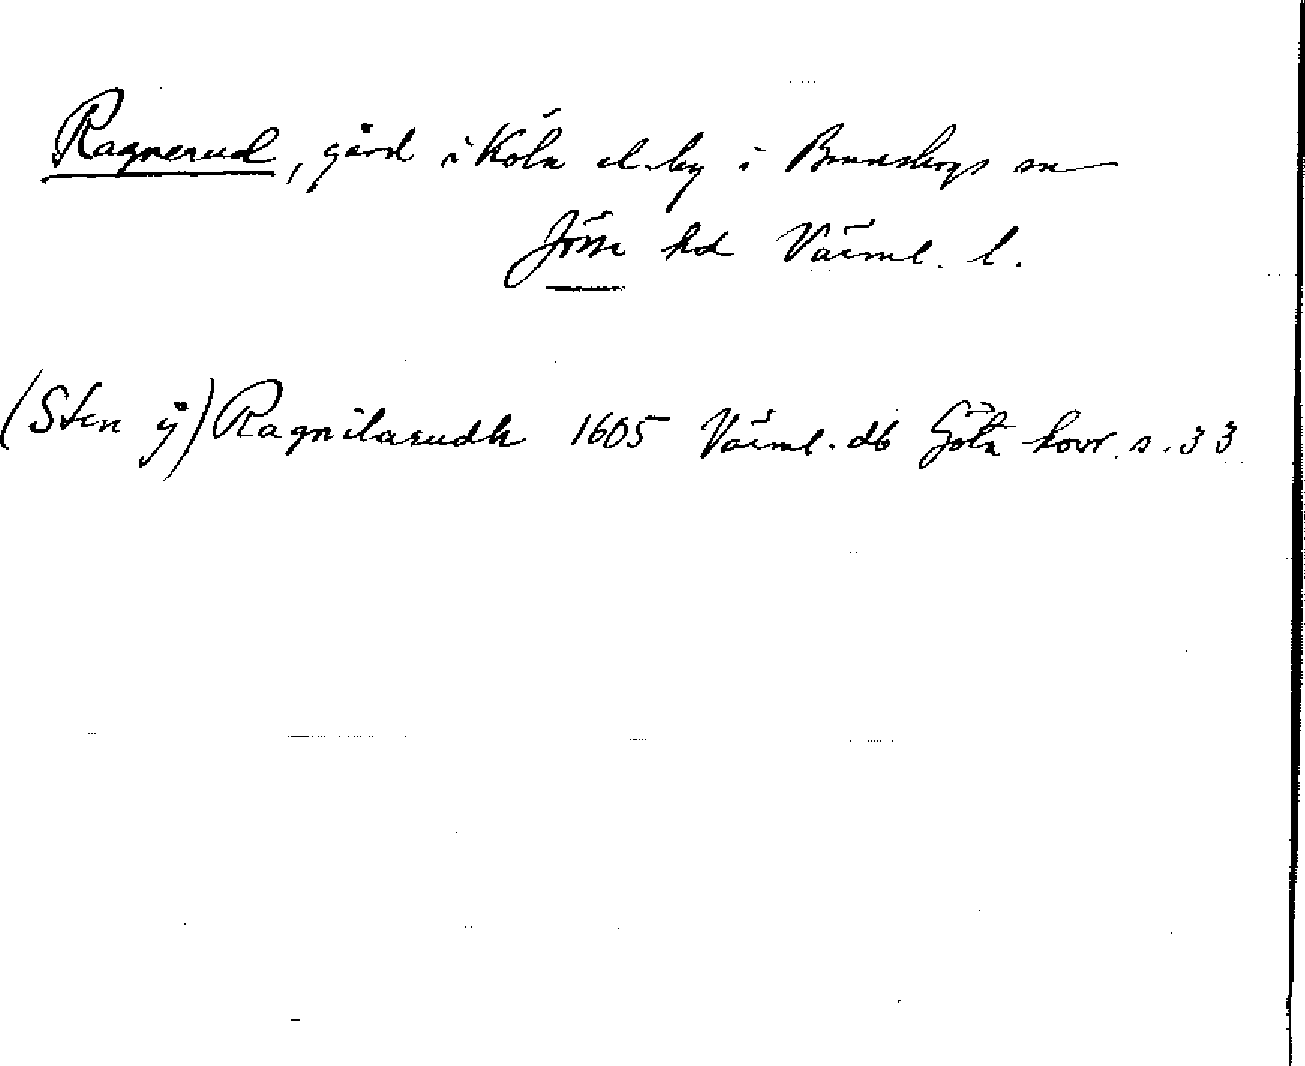 Ragnerud, gård i Köla el. by i Brunskogs sn
Jösse hd Värml. l.
(Sten ÿ) Ragnilarudh 1605 Värml. db Göta hovr. s. 33